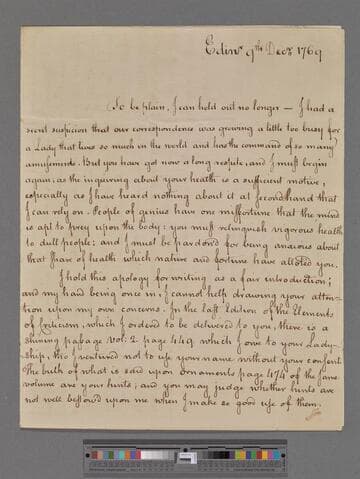 Edinr 9th Decr 1769
To be plain, I can hold out no longer — I had a
secret suspicion that our correspondence was growing a little too busy for
a Lady that lives so much in the world and has the command of so many
amusements. But you have got now a long respite, and I must begin
again; as the inquiring about your health is a sufficient motive,
especially as I have heard nothing about it at second hand that
I can rely on. People of genius have one misfortune that the mind
is apt to prey upon the body: you must relinquish vigorous health
to dull people; and I must be pardon'd for being anxious about
that share of health which nature and fortune have alloted you.
I hold this apology for writing as a fair introduction;
and my hand being once in, I cannot help drawing your atten-
tion upon my own concerns. In the last Edition of the Elements
of Criticism, which I ordered to be delivered to you, there is a
shining passage Vol: 2. page 449 which I owe to your Lady-
ship, tho' I ventured not to use your name without your consent.
The bulk of what is said upon Ornaments page 474 of the same
volume are your hints; and you may judge whether hints are
not well bestow'd upon me when I make so good use of them.